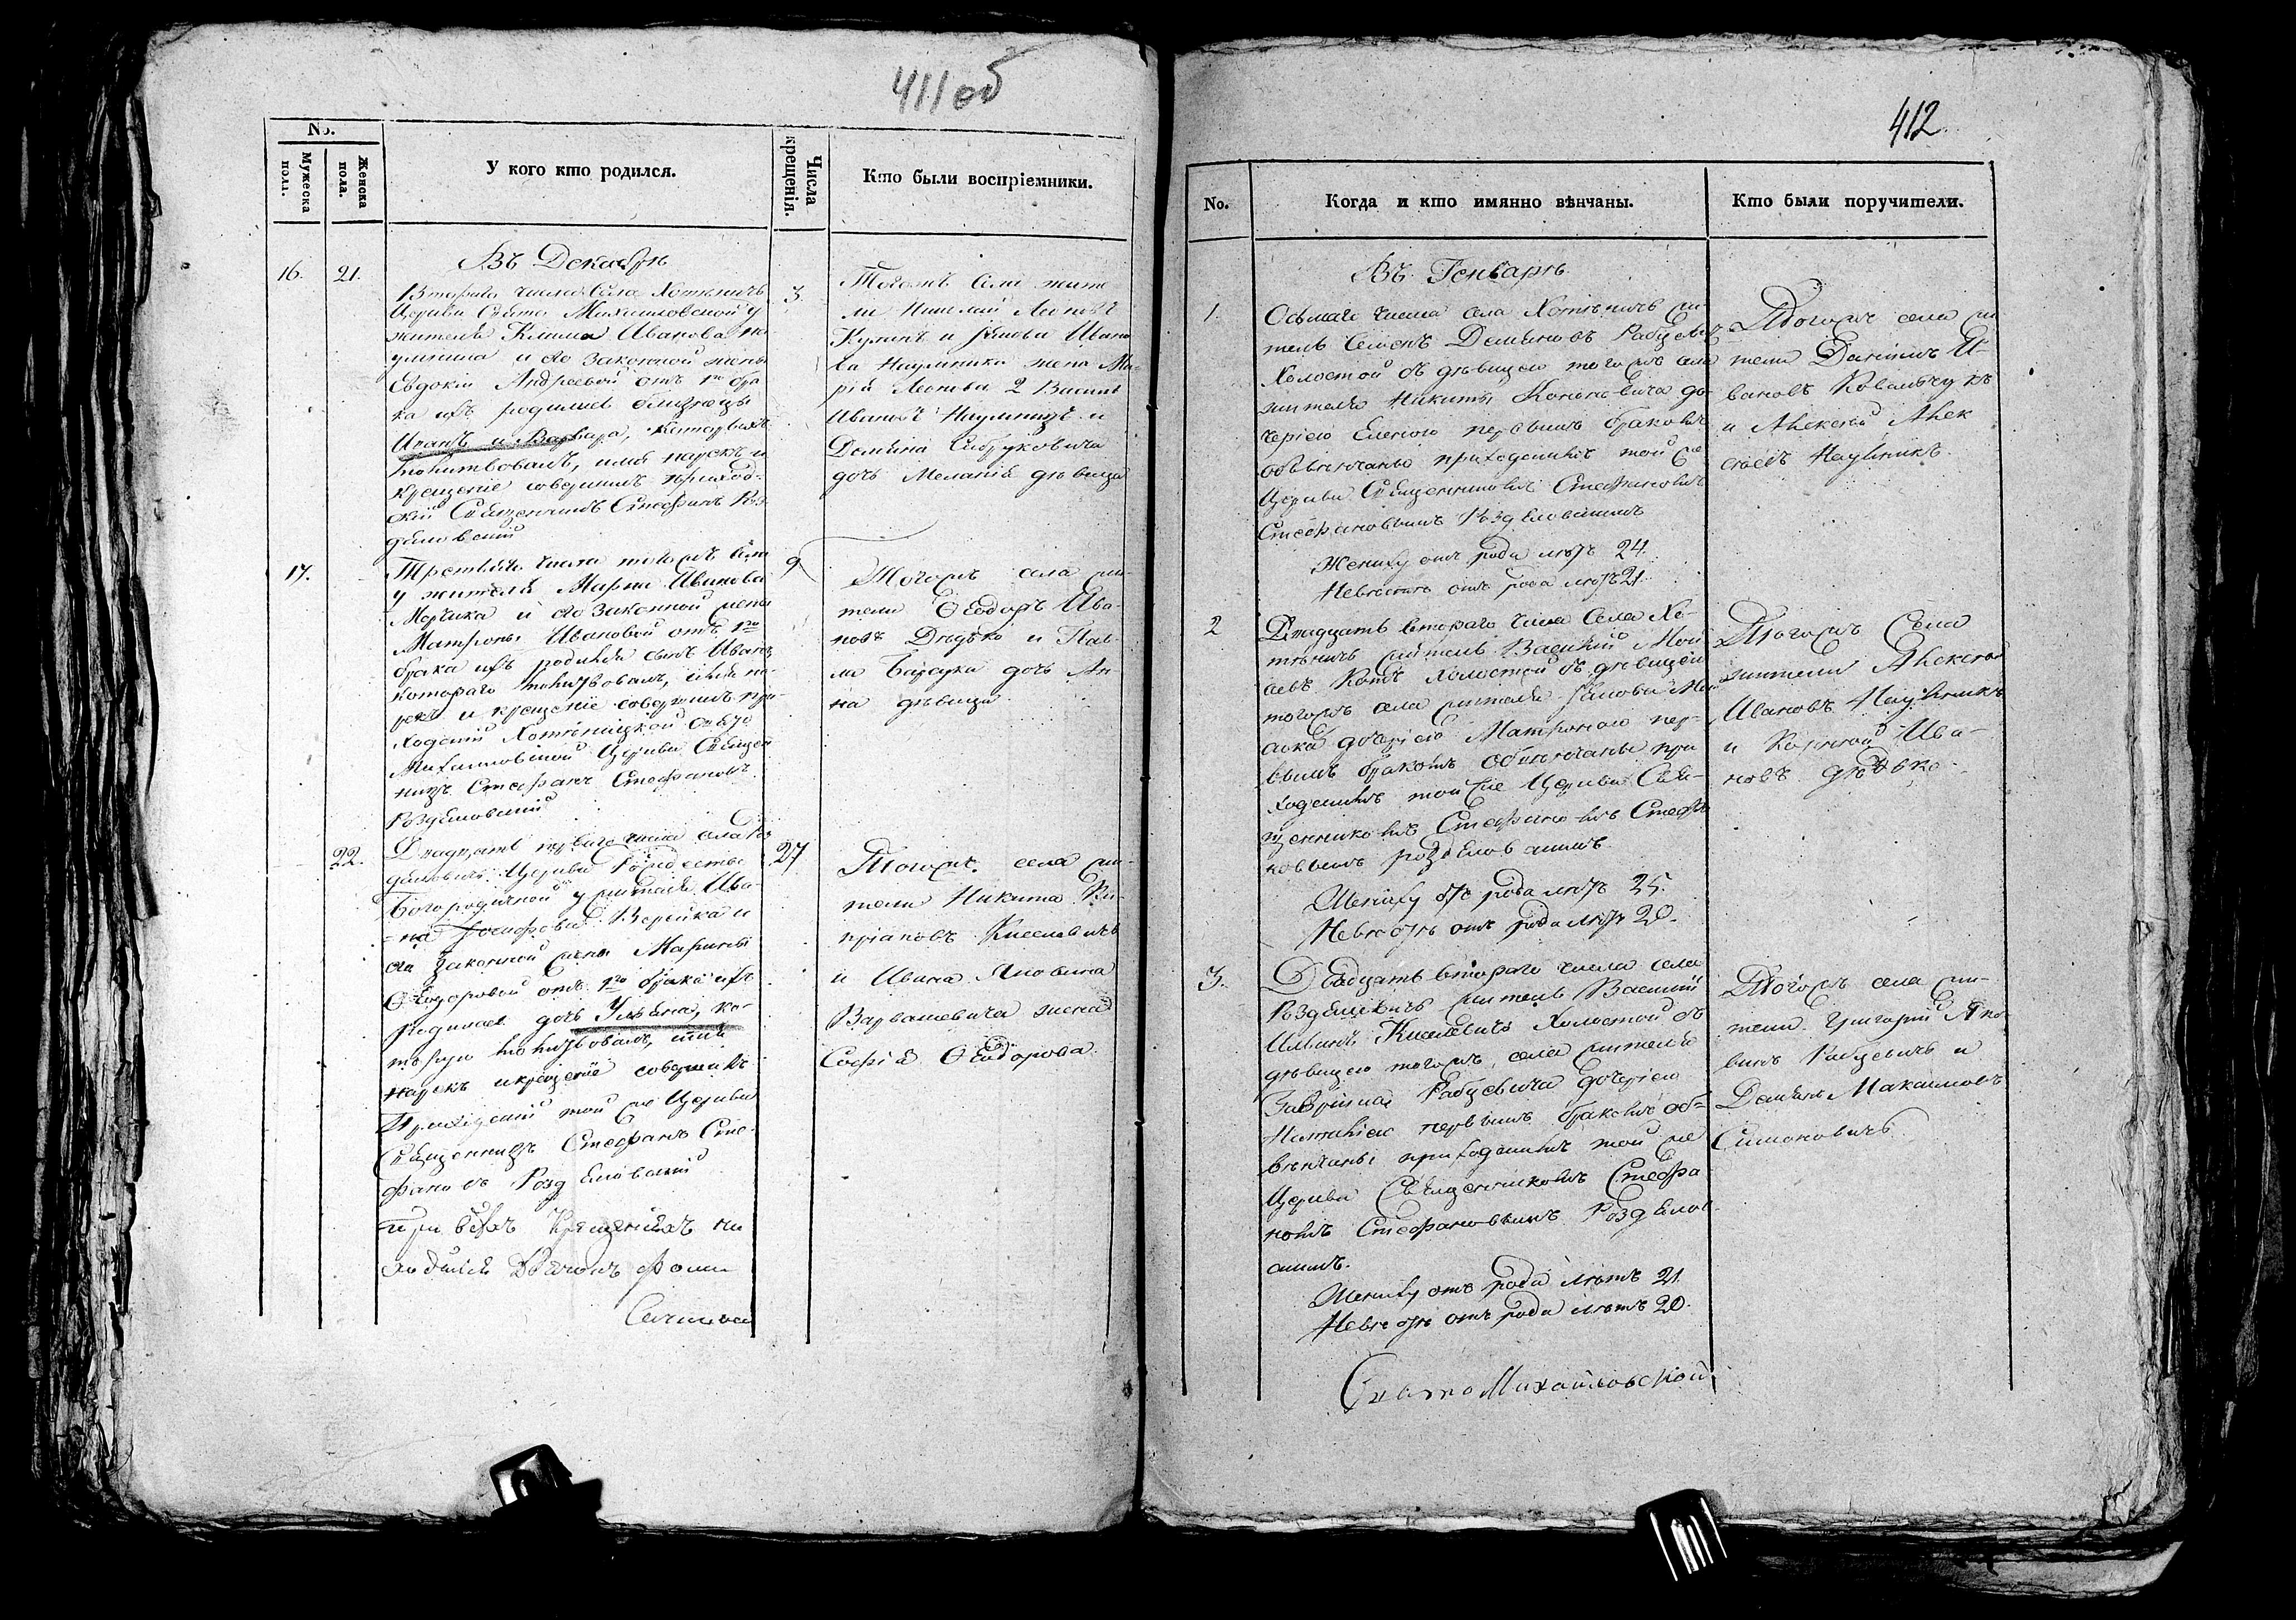 411об
No.
Мужеска пола.
Женска пола.
У кого кто родился.
Числа крещенія.
Кто были воспріемники.
Въ Декабрѣ
16. 21.
Втораго числа села Хотыничъ
Церкви Свято Михайловской у
жителя Клима Иванова На
умчика и его законной жены
Евдокіи Андреевой отъ 1го бра
ка ихъ родились близнецы
Иванъ и Варвара, которыхъ
молитвовалъ, имя нарекъ и
крещеніе совершилъ приход-
скій Священникъ Стефанъ Роз
деловскій
3
Тогожъ села жите
ли
и Иванова Ивано
ва жена Ма
рія 2 Василь
Ивановъ и
Доміана
дочь Меланія дѣвица
17.
Третьяго числа тогожъ села
у жителя Марка Иванова
и его законной жены
Матроны Ивановой отъ 1го
брака ихъ родился сынъ Иванъ
котораго молитвовалъ, имя на-
рекъ и крещеніе совершилъ при-
ходскій Хотыницкой Свято
Михайловской Церкви Священ
никъ Стефанъ Стефановъ
Роздѣловскій
9
Тогожъ села жи-
тели Ѳеодоръ Ива-
новъ Дѣдько и Пав-
ла дочь Ан-
на дѣвица
22.
Двадцать перваго числа села Роз
дяловичъ Церкви Рождество
Богородичной у жителя Ива-
на Верейка и
его законной жены Марины
Ѳеодоровой отъ 1го брака ихъ
родилась дочь Ульяна, ко-
торую молитвовалъ, имя
нарекъ и крещеніе совершилъ
Приходскій той же Церкви
Священникъ Стефанъ Сте-
фановъ Роздѣловскій
при всѣхъ крещеніяхъ на
ходился Дьячокъ Фома
27
Тогожъ села жи-
тели Никита Ки-
пріановъ Киселевичъ
и Ивана Яковина
Варвашевича жена
Софія Ѳеодорова
412
No.
Когда и кто имянно вѣнчаны.
Кто были поручители.
Въ Генварѣ
1.
Осьмаго числа села Хотыничъ жи-
тель Семенъ Демьяновъ Рабцевичъ
Холостой съ дѣвицею тогожъ села
жителя Никиты Кононовича до-
черією Еленою первымъ бракомъ
обвѣнчаны приходскимъ той же
Церкви Священникомъ Стефаномъ
Стефановымъ Роздѣловскимъ
Жениху отъ рода лѣтъ 24.
Невѣстѣ отъ рода лѣтъ 21.
Тогожъ села жи
тели Даніилъ И-
вановъ Ковальчукъ
и Алексѣй Алек
сѣевъ Наумчикъ.
2
Двадцать втораго числа Села Хо-
тыничъ житель Василій Мои
сѣевъ Котъ Холостой съ дѣвицею
тогожъ села жителя
дочерією Матроною пер-
вымъ бракомъ обвѣнчаны при
ходскимъ той же Церкви Свя-
щенникомъ Стефаномъ Стефа
новымъ Роздѣловскимъ.
Жениху отъ рода лѣтъ 25.
Невѣстѣ отъ рода лѣтъ 20.
Тогожъ Села
жители Алексѣй
Ивановъ Наумчикъ
и Корней Ива-
новъ Дѣдько.
3.
Двадцать втораго числа села
Роздѣловичъ житель Василій
Ильинъ Киселевичъ Холостой съ
дѣвицею тогожъ села жителя
Рабцевича дочерією
Наталіею первымъ бракомъ об-
вѣнчаны приходскимъ той же
Церкви Священникомъ Стефа
номъ Стефановымъ Роздѣлов-
скимъ.
Жениху отъ рода лѣтъ 21.
Невѣстѣ отъ рода лѣтъ 20.
Тогожъ села жи-
тели Григорій Яко
винъ Рабцевичъ и
Демьянъ Максимовъ
Симоновичъ
Свято Михайловской